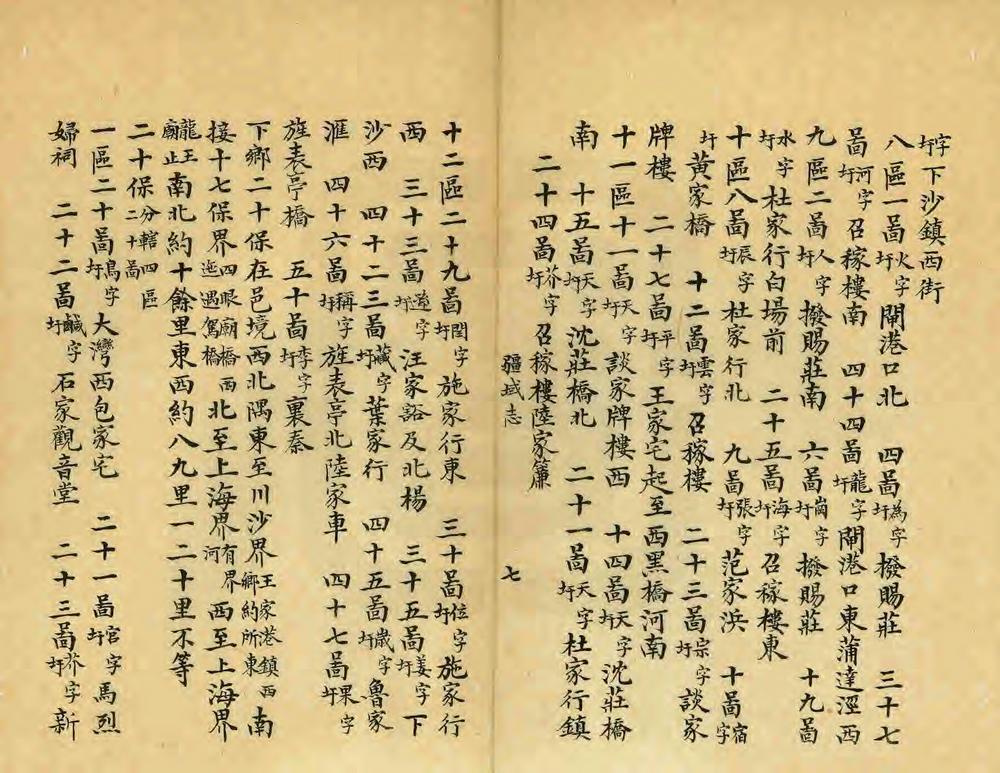 字圩下沙鎮西街
八區一啚火字圩閘港口北　四啚為字圩撥賜莊　三十七
啚河字圩召稼樓南　四十四啚龍字圩閘港口東蒲達涇西
九區二啚人字圩撥賜莊南　六啚崗字圩撥賜莊　十九啚
水字圩杜家行白場前　二十五啚海字圩召稼樓東
十區八啚辰字圩杜家行北　九啚張字圩范家浜　十啚宿字
圩黃家橋　十二啚雲字圩召稼樓　二十三啚宗字圩談家
牌樓　二十七啚平字圩王家宅起至西黑橋河南
十一區十一啚天字圩談家牌樓西　十四啚天字圩沈莊橋
南　十五啚天字圩沈莊橋北　二十一啚天字圩杜家行鎮
二十四啚芥字圩召稼樓陸家簾
疆域志　七
十二區二十九啚閏字圩施家行東　三十啚位字圩施家行
西　三十三啚道字圩汪家谽及北楊　三十五啚姜字圩下
沙西　四十二啚藏字圩葉家行　四十五啚歲字圩魯家
滙　四十六啚稱字圩旌表亭北陸家車　四十七啚果字圩
旌表亭橋　五十啚李字圩裏秦
下鄉二十保在邑境西北隅東至川沙界王家港鎮西鄉約所東南
接十七保界四眼廟橋西迤遇駕橋北至上海界有界河西至上海界
龍王廟止南北約十餘里東西約八九里一二十里不等
二十保分轄四區二十啚
一區二十啚鳥字圩大灣西包家宅　二十一啚官字圩馬烈
婦祠　二十二啚鹹字圩石家觀音堂　二十三啚芥字圩新